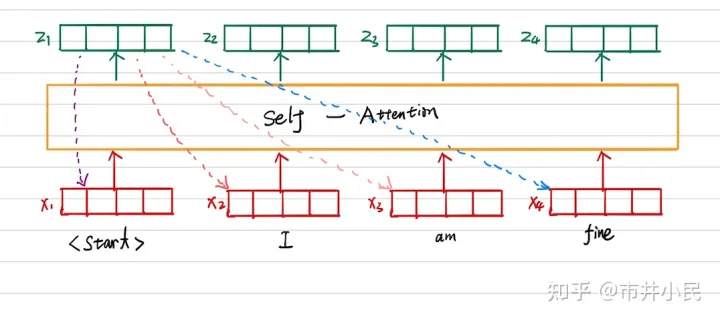 z₁ z₂ z₃ z₄
Self — Attention
x₁ x₂ x₃ x₄
<Start> I am fine
知乎 @市井小民